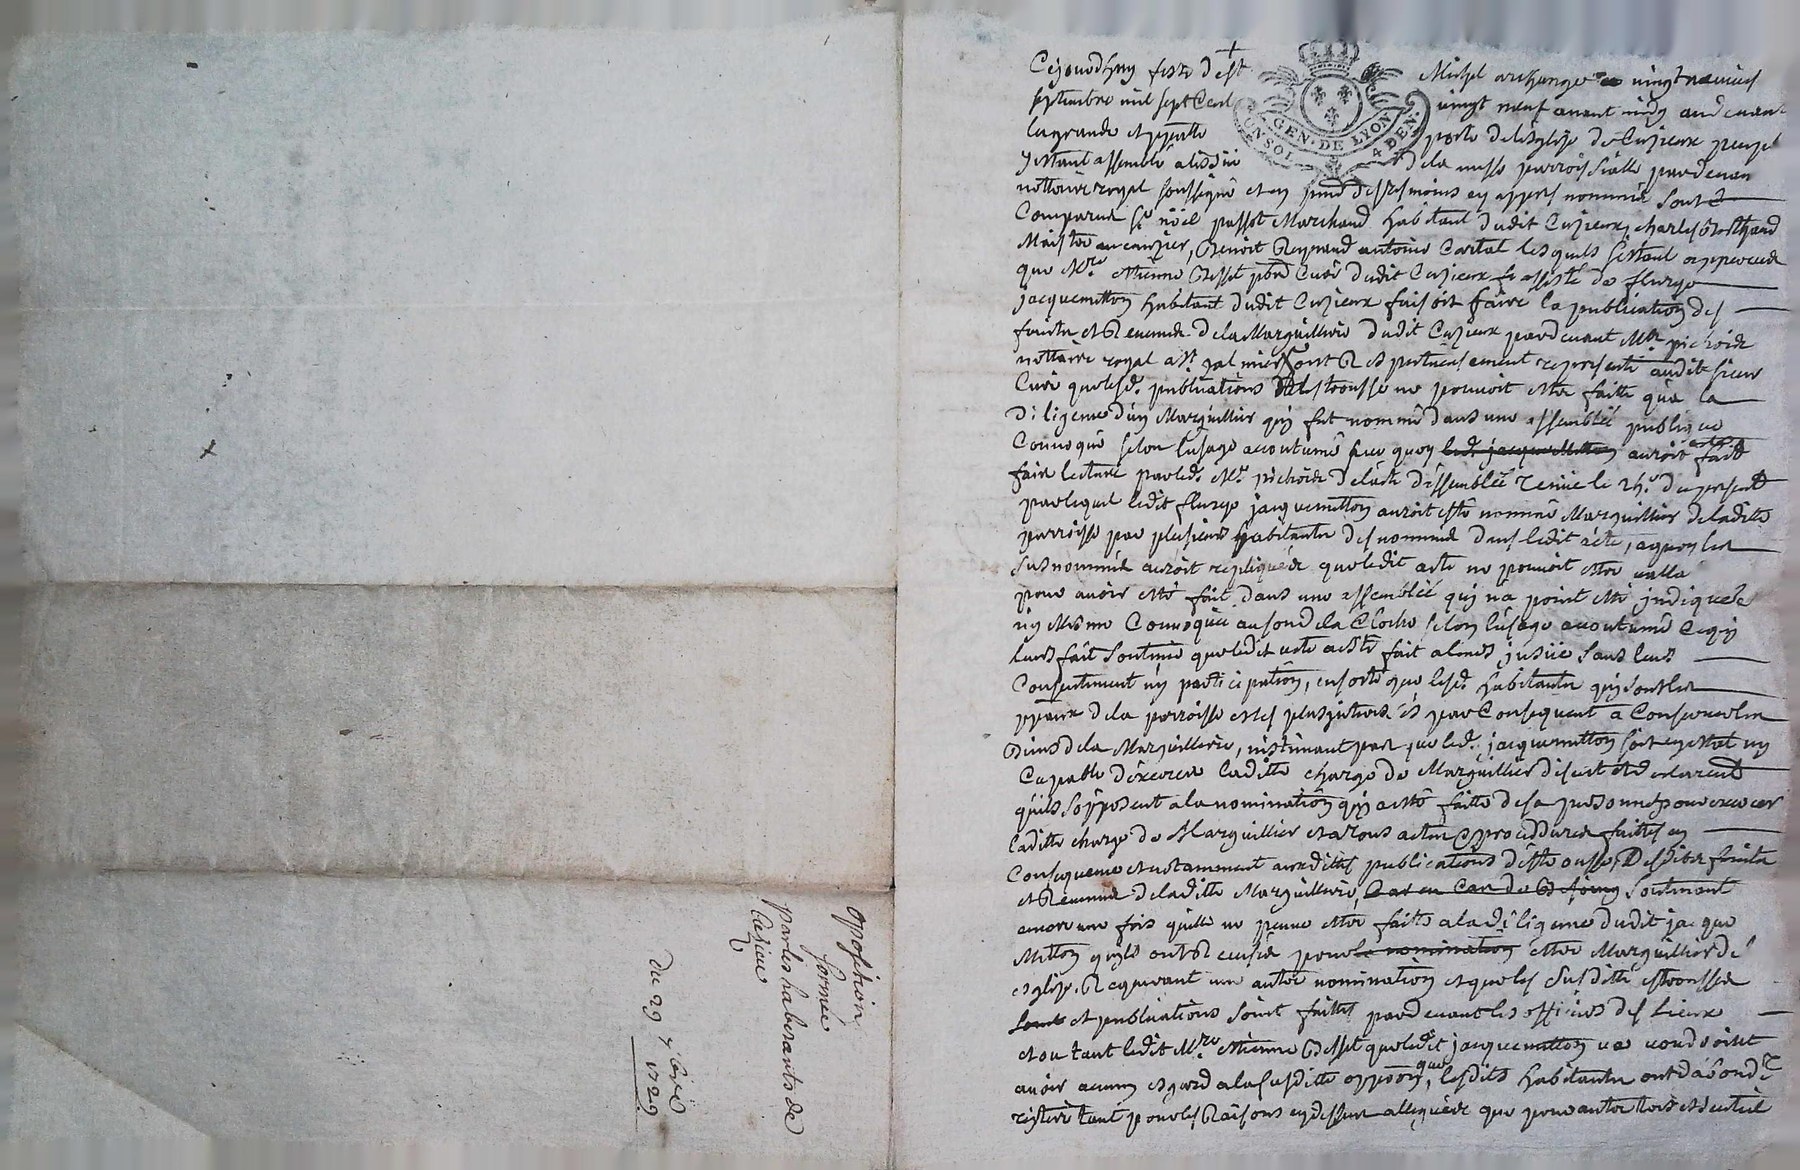 Cejourdhuy feste de st Michel archange vingt neuvies
septembre mil sept Cent vingt neuf avant midy au devant
la grande et ppalle porte de lesglize de Cuzieux peuple
y estant assemblé a lissüe de la messe parroissialle pardevan
nottaire royal soussigné et en pnce des tesmoins cy appres nommés sont
Comparus sr nöel passot Marchand habitant dudit Cuzieux, charles
Maistre, Benoit Reynaud antoine Cartal lesquels sestant apperceus
que Mre estienne Besset pbre Curé dudit Cuzieux assisté de fleurys
jacquemetton habitant dudit Cuzieux faisoit faire la publication des
fruits et Revenus de la Marguillerie dudit Cuzieux pardevant Me pichoix
nottaire royal a st galmier sont Respectueusement representé audit sieur
Curé que lesd. publications destrousse ne pouvoit estre faitte qua la
diligence dun Marguillier qui fut nommé dans une assemblée publique
Convoqué selon lusage accoutumé sur quoy led. jacquemetton auroit esté fait
faire lecture par led. Me pichoix de lacte dassemblée tenüe le 24e du present
par lequel ledit fleurys jacquemetton auroit esté nommé Marguillier de ladite
parroisse par plusieurs habitants desnommés dans ledit acte, a quoy les
susnommés auroit repliqués que ledit acte ne pouvoit estre vallé
pour avoir esté fait dans une assemblée qui na point esté jndiquée
ny Mesme Convoquée au son de la Cloche selon lusage accoutumé Ce qui
leurs fait soutenir que ledit acte a esté fait a leurs jnsceu sans leurs
Consentiment ny participation, ensorte que lesd. habitants qui sont les
ppaux de la parroisse et les plus jnteressés par Consequent a Conserver les
Biens de la Marguillerie, nestimant pas que led. jacquemetton soit en estat ny
Capable dexercer laditte charge de Marguillier disent et declarent
quils sopposent a la nomination qui a esté faitte de sa personne pour exercer
laditte charge de Marguillier et a tous actes et procedures faittes en
Consequence et notamment aux dittes publications destrousse desdits fruits
et Revenus de laditte Marguillerie, soutenant
encore une fois quelle ne peuve estre faitte a la diligence dudit jacque
Metton quils ont Recusés pour la nomination estre Marguillier de
esglize. Requerant une autre nomination et que les susditte estrousses
sont et publications soint faittes pardevant les officiers des lieux
et ou tant ledit Mre estienne Besset que ledit jacquemetton ne voudroint
avoir aucun esgard a la susditte opposon, que lesdits habitants ont dabond
reïteré tant pour les Raisons cy dessus alleguées que pour autre
opposition
formée
par les habitants de
Cuzieu
du 29 7bre
1729
UN SOL GEN. DE LYON 4 DEN.